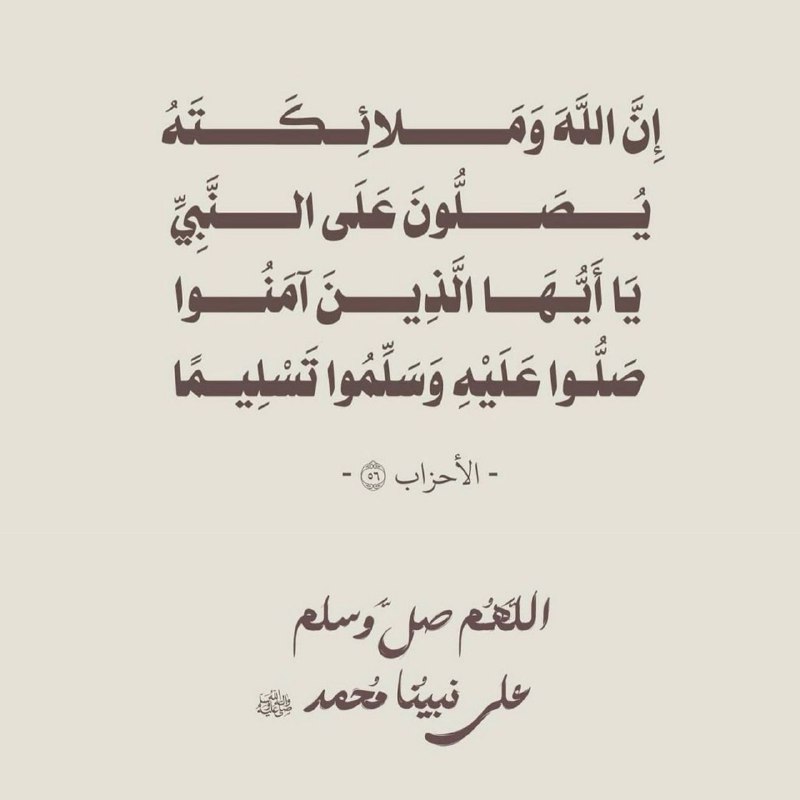 إِنَّ اللَّهَ وَمَلائِكَتَهُ
يُصَلُّونَ عَلَى النَّبِيِّ
يَا أَيُّهَا الَّذِينَ آمَنُوا
صَلُّوا عَلَيْهِ وَسَلِّمُوا تَسْلِيمًا
- الأحزاب ٥٦ -
اللَّهُم صلِّ وسلم
على نبينا مُحمد ﷺ